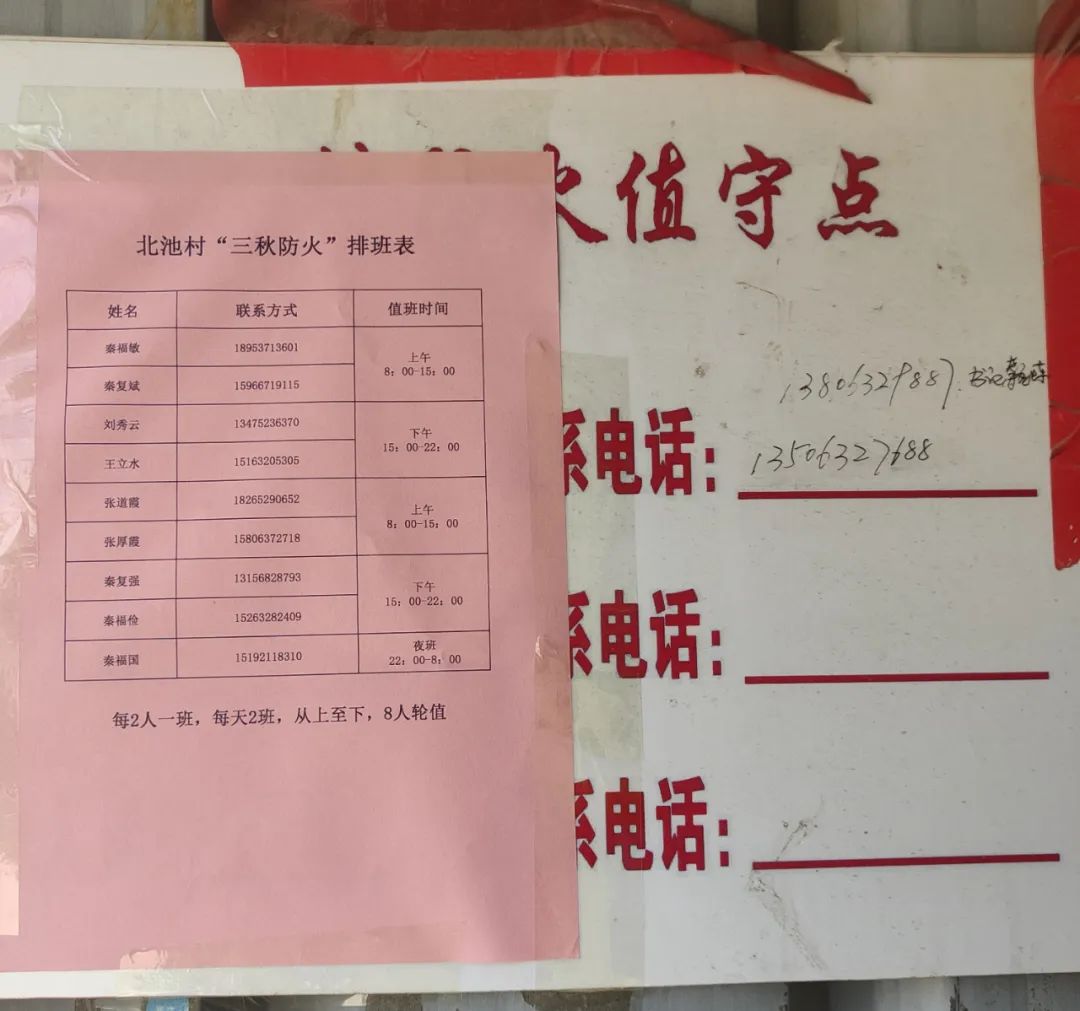 火值守点
北池村“三秋防火”排班表
姓名 联系方式 值班时间
秦福敏 18953713601 上午 8：00-15：00
秦复斌 15966719115
刘秀云 13475236370 下午 15：00-22：00
王立水 15163205305
张道霞 18265290652 上午 8：00-15：00
张厚霞 15806372718
秦复强 13156828793 下午 15：00-22：00
秦福俭 15263282409
秦福国 15192118310 夜班 22：00-8：00
每2人一班，每天2班，从上至下，8人轮值
13806329887 书记
系电话：13506327688
系电话：
系电话：